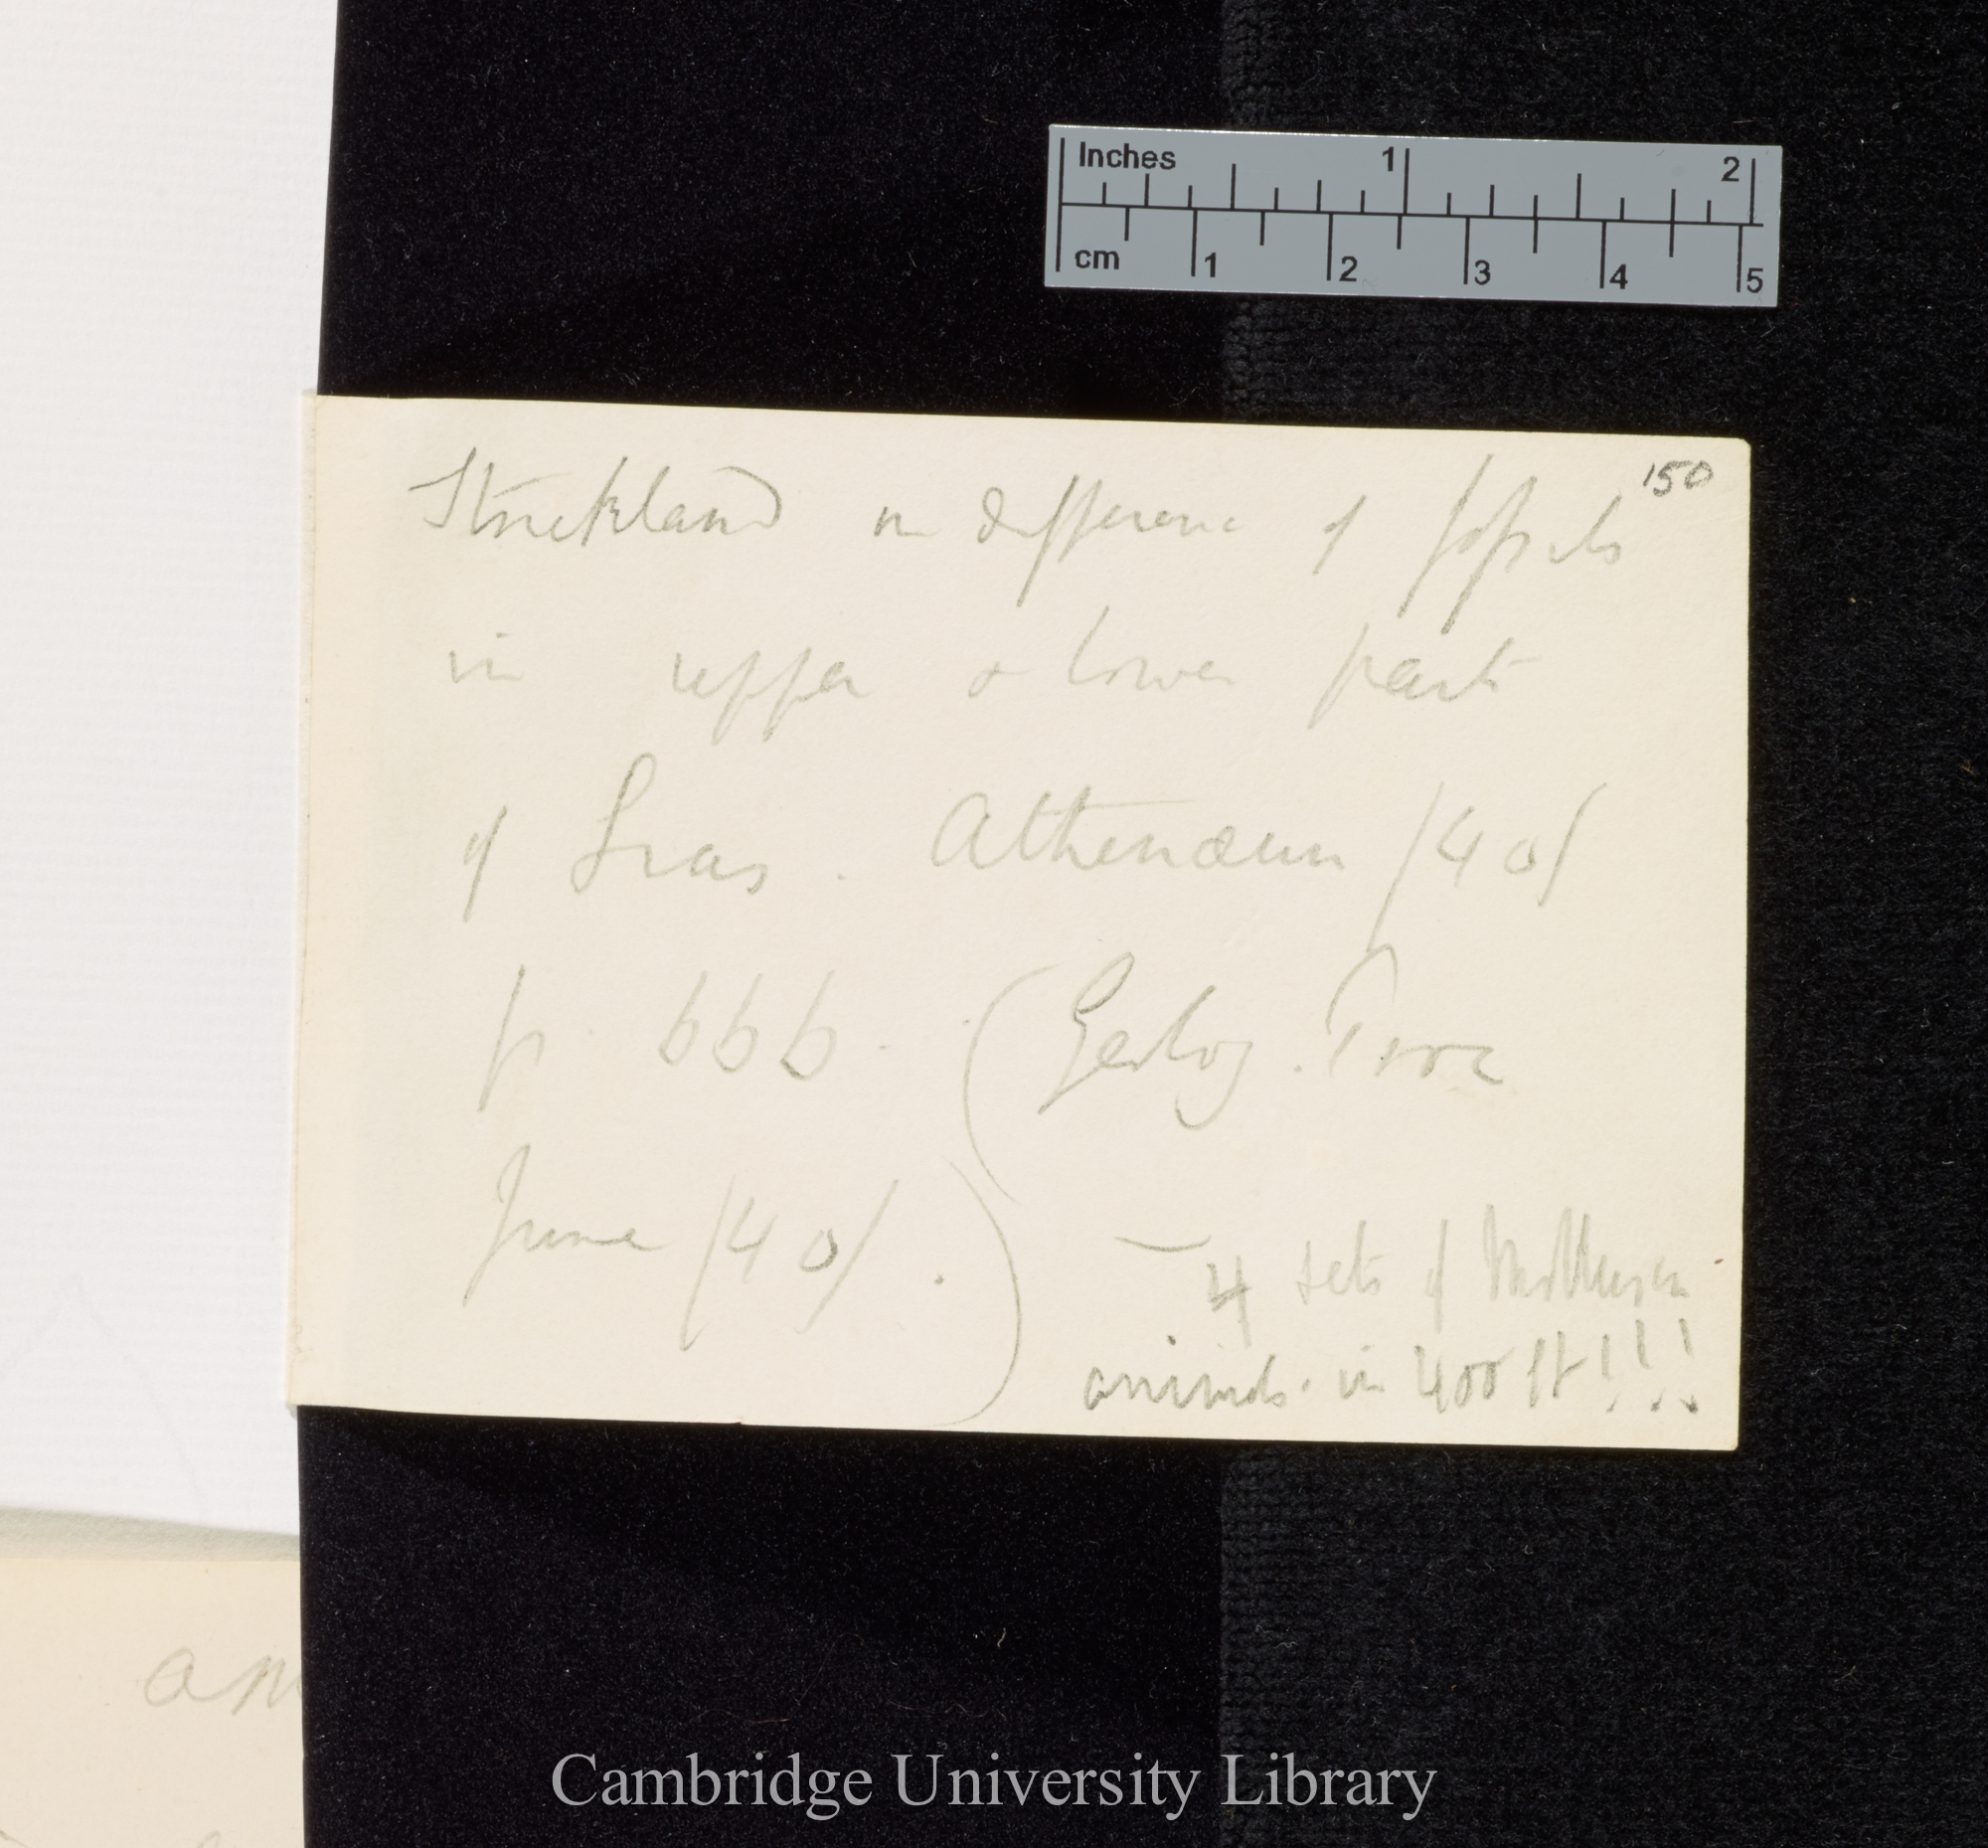 Inches 1 2
cm 1 2 3 4 5
150
Strickland on difference of fossils
in upper & lower part
of Lias. Athenæum /40/
p. 666. (Geolog. Proc
June /40/.)
— 4 sets of Molluscan
animals. in 400 ft!!!
am
Cambridge University Library